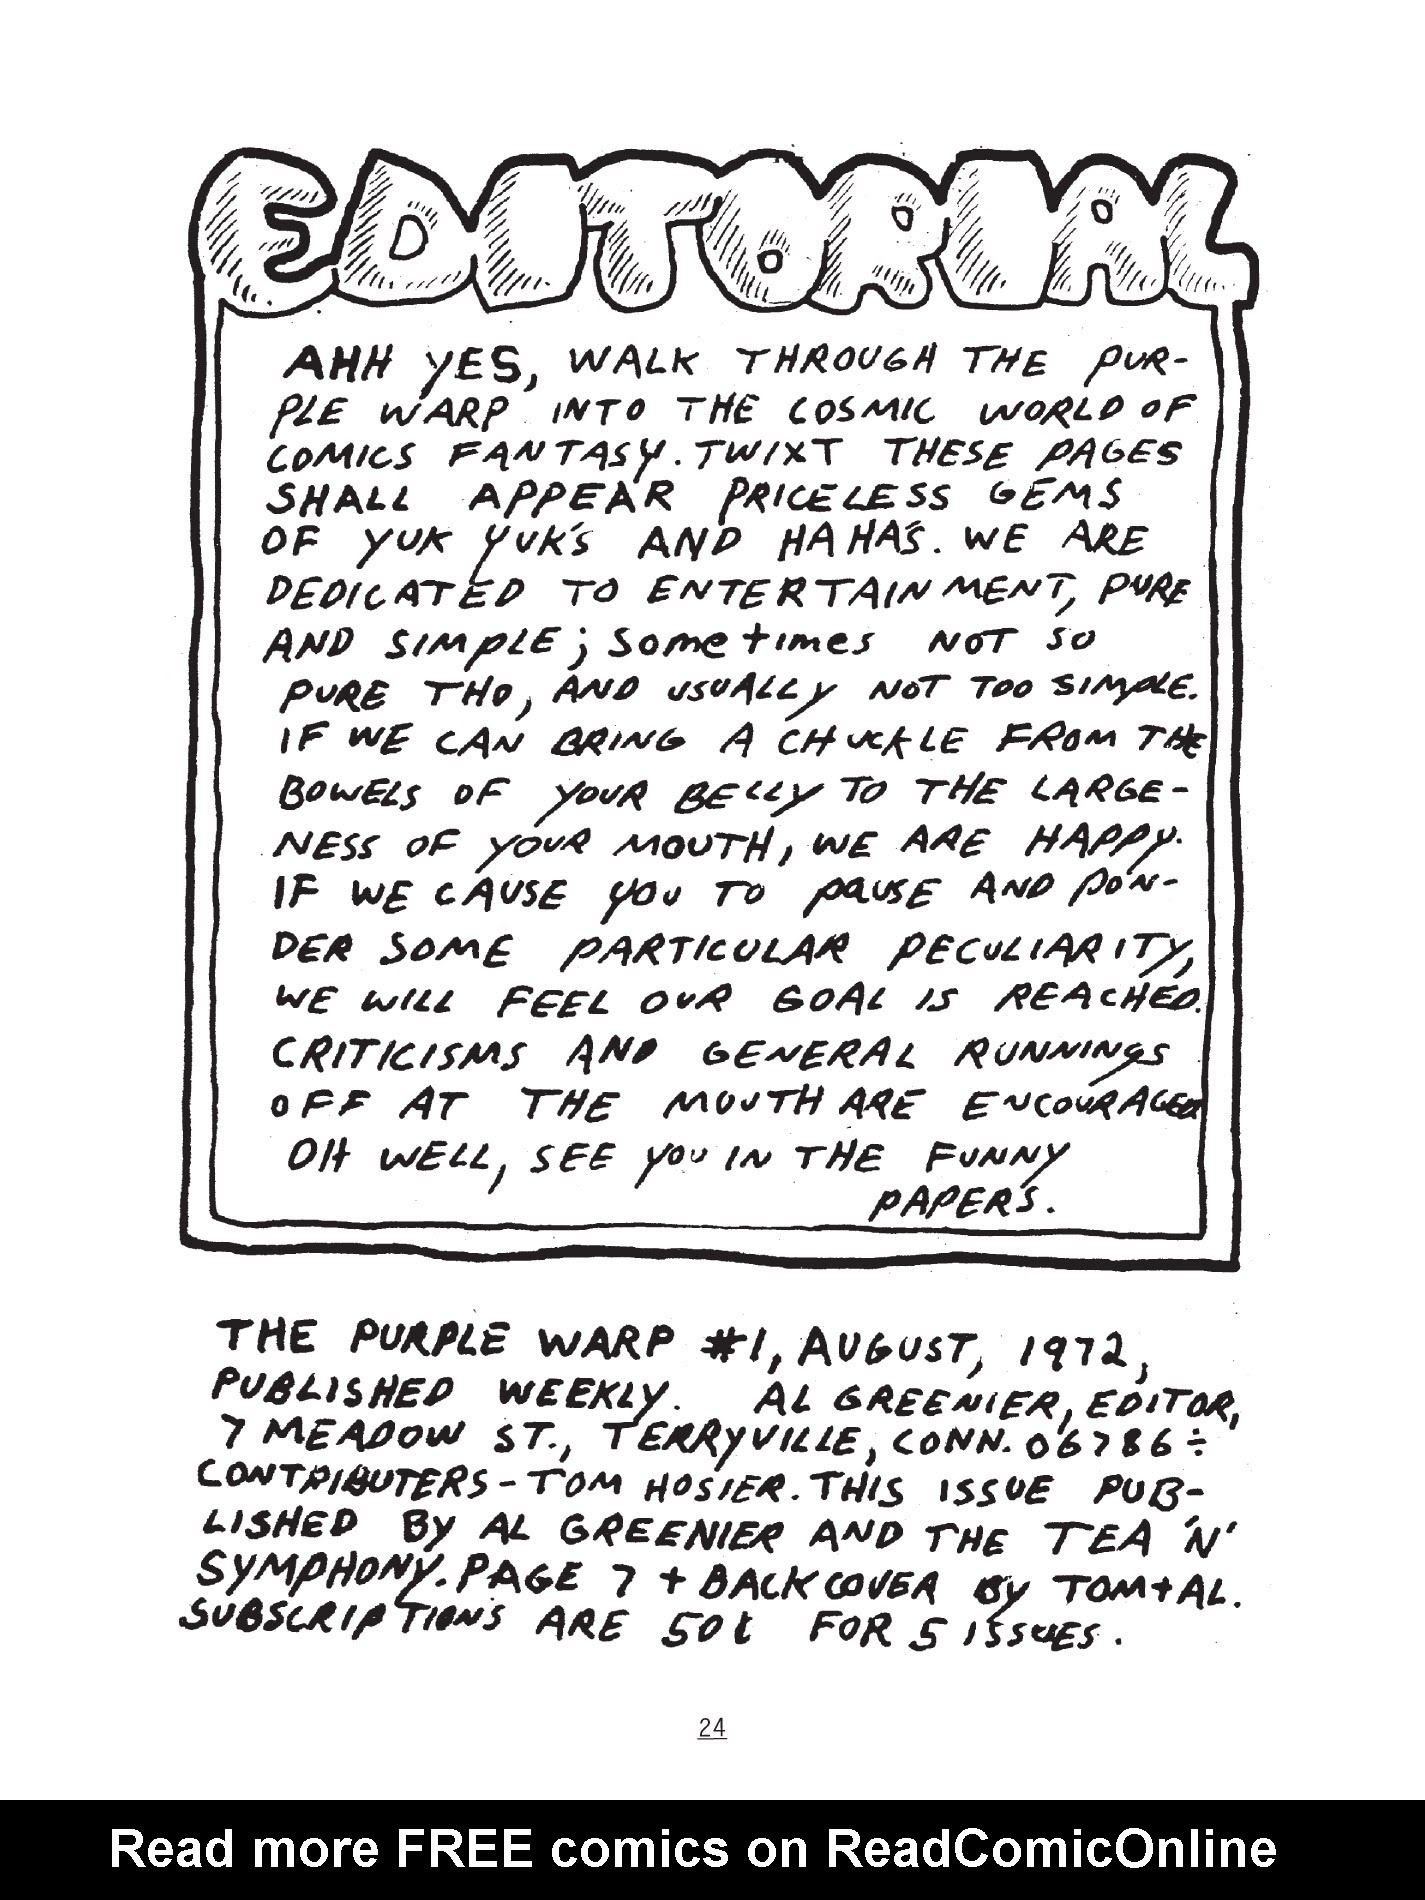 EDITORIAL
AHH YES, WALK THROUGH THE PUR-
PLE WARP INTO THE COSMIC WORLD OF
COMICS FANTASY. TWIXT THESE PAGES
SHALL APPEAR PRICELESS GEMS
OF YUK YUK'S AND HA HA'S. WE ARE
DEDICATED TO ENTERTAINMENT, PURE
AND SIMPLE; Sometimes NOT SO
PURE THO, AND USUALLY NOT TOO SIMPLE.
IF WE CAN BRING A CHUCKLE FROM THE
BOWELS OF YOUR BELLY TO THE LARGE-
NESS OF YOUR MOUTH, WE ARE HAPPY.
IF WE CAUSE YOU TO PAUSE AND PON-
DER SOME PARTICULAR PECULIARITY,
WE WILL FEEL OUR GOAL IS REACHED.
CRITICISMS AND GENERAL RUNNINGS
OFF AT THE MOUTH ARE ENCOURAGED
OH WELL, SEE YOU IN THE FUNNY
PAPERS.
THE PURPLE WARP #1, AUGUST, 1972,
PUBLISHED WEEKLY. AL GREENIER, EDITOR,
7 MEADOW ST., TERRYVILLE, CONN. 06786 ÷
CONTRIBUTERS - TOM HOSIER. THIS ISSUE PUB-
LISHED BY AL GREENIER AND THE TEA 'N'
SYMPHONY. PAGE 7 + BACK COVER BY TOM + AL.
SUBSCRIPTIONS ARE 50¢ FOR 5 ISSUES.
24
Read more FREE comics on ReadComicOnline